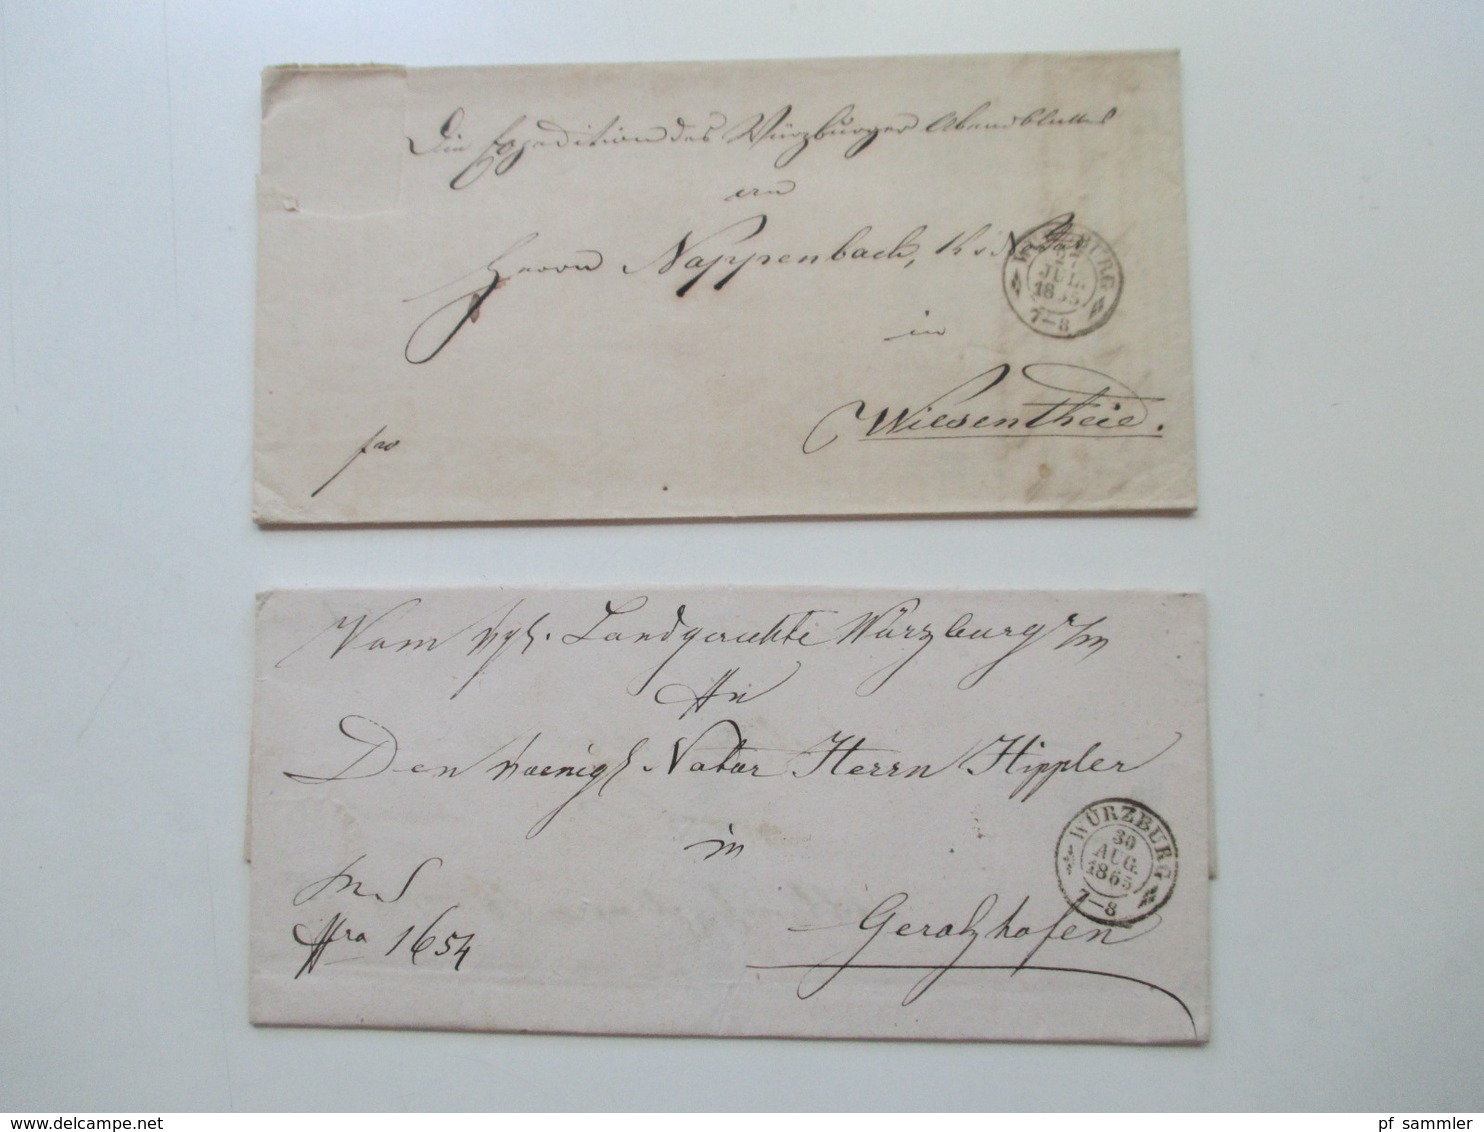 Die Expedition des Würzburger Abendblattes
an
Herrn Nappenbach, K.
WÜRZBURG
27
JUL.
1865
7-8
in
Wiesentheid.
fro
Vom kgl. Landgerichte Würzburg r/m
An
Den koenigl. Notar Herrn Hippler
in
WÜRZBURG
30
AUG.
1865
7-8
Gerolzhofen
Nro 1654
pf sammler